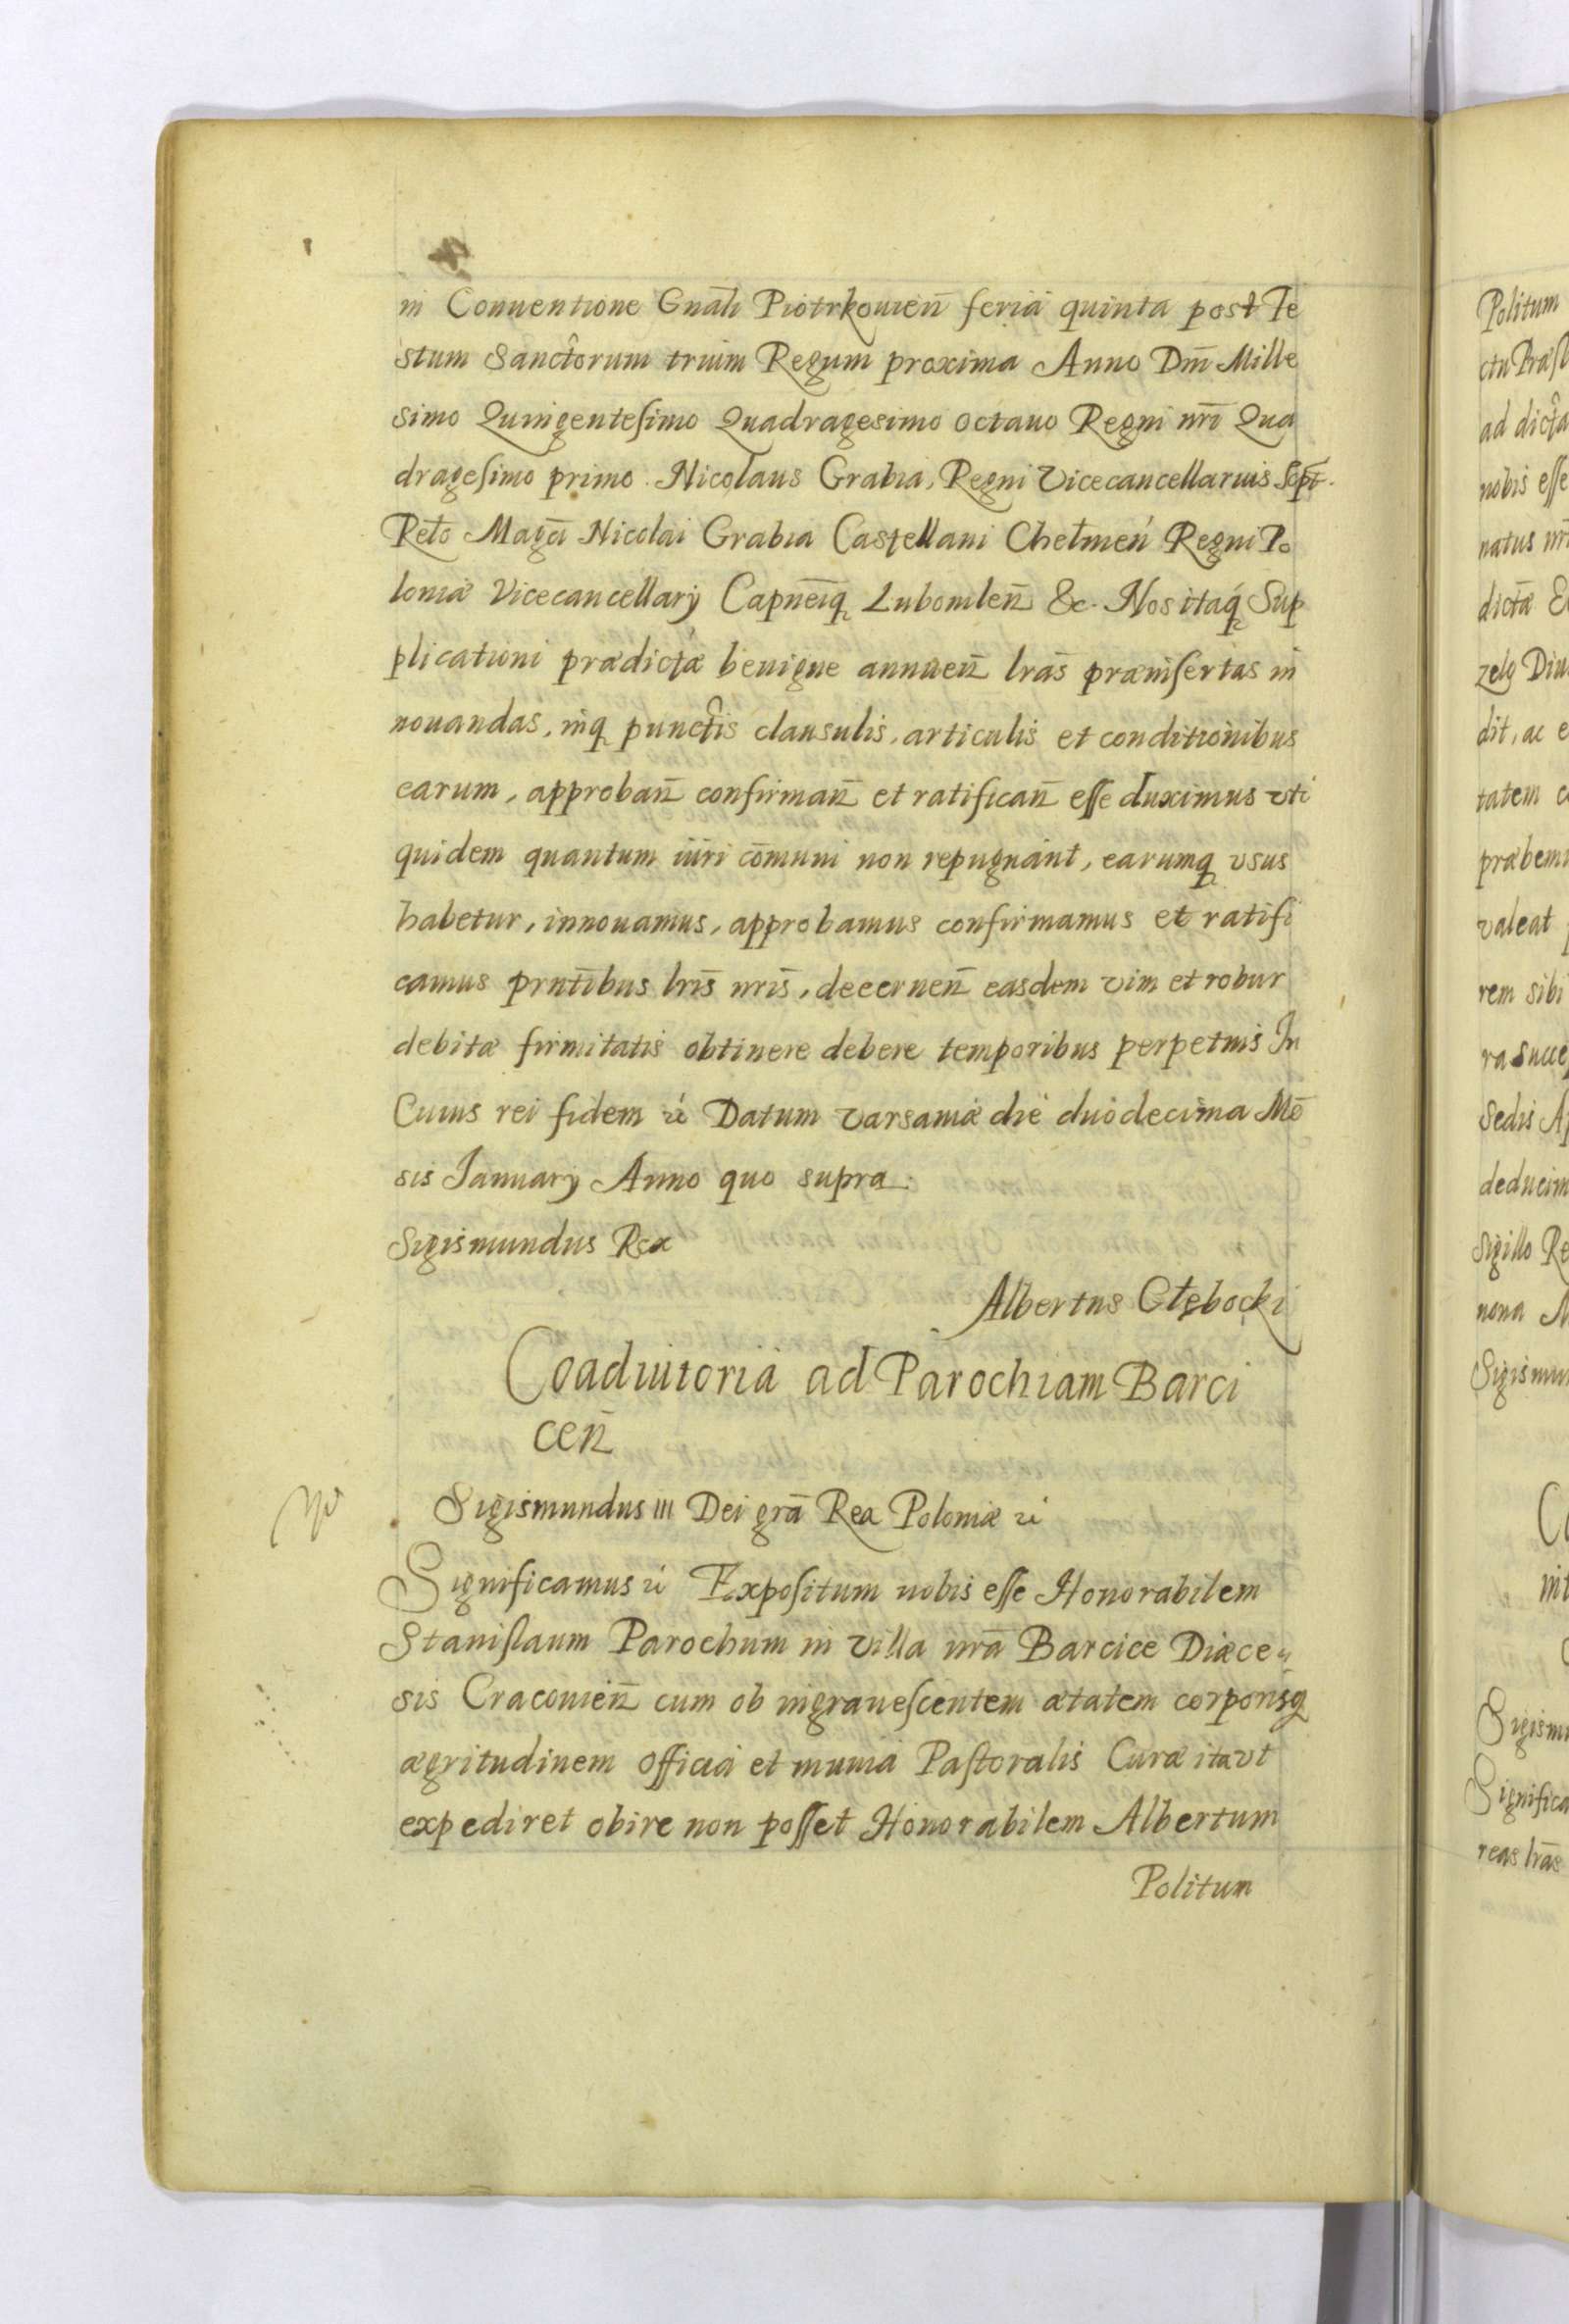 in Conuentione Gnãli Piotrkouien̄ feria quinta post Fe
stum Sanctorum trium Regum proxima Anno Dm̄ Mille
simo Quingentesimo Quadragesimo octauo Regni nr̄i Qua
dragesimo primo. Nicolaus Grabia, Regni Vicecancellarius Scpt.
Relō Magci Nicolai Grabia Castellani Chełmen̄ Regni Po
loniæ Vicecancellarÿ Capneiq̨ Lubomlen̄ &c. Nos itaq̨ Sup
plicationi prædictæ benigne annuen̄ lrãs præinsertas in
nouandas, inq̨ punctis clausulis, articulis et conditionibus
earum, approban̄ confirman̄ et ratifican̄ esse duximus vti
quidem quantum iuri cōmuni non repugnant, earumq̨ vsus
habetur, innouamus, approbamus confirmamus et ratifi
camus prntĩbus lrĩs nrĩs, decernen̄ easdem vim et robur
debitæ firmitatis obtinere debere temporibus perpetuis In
Cuius rei fidem ꝛc̃ Datum Varsauiæ die duodecima Mē
sis Januarÿ Anno quo supra.
Sigismundus Rex
Albertus Głębocki
Coadiutoria ad Parochiam Barci
cen̄
Sigismundus III Dei grã Rex Poloniæ ꝛc̃
Significamus ꝛc̃ Expositum nobis esse Honorabilem
Stanislaum Parochum in villa nrã Barcice Diæce
sis Cracouien̄ cum ob ingrauescentem ætatem corporisq̨
ægritudinem officia et munia Pastoralis Curæ ita vt
expediret obire non posset Honorabilem Albertum
Politum
Politum
ad dicta
nobis esse
natus nr̄
dictæ
zelo Diu
dit, ac e
tatem c
præbem
valeat
rem sibi
ra succe
Sedis A
deducim
Sigillo Re
nona M
Sigismu
Sigism
Significa
reas lrãs